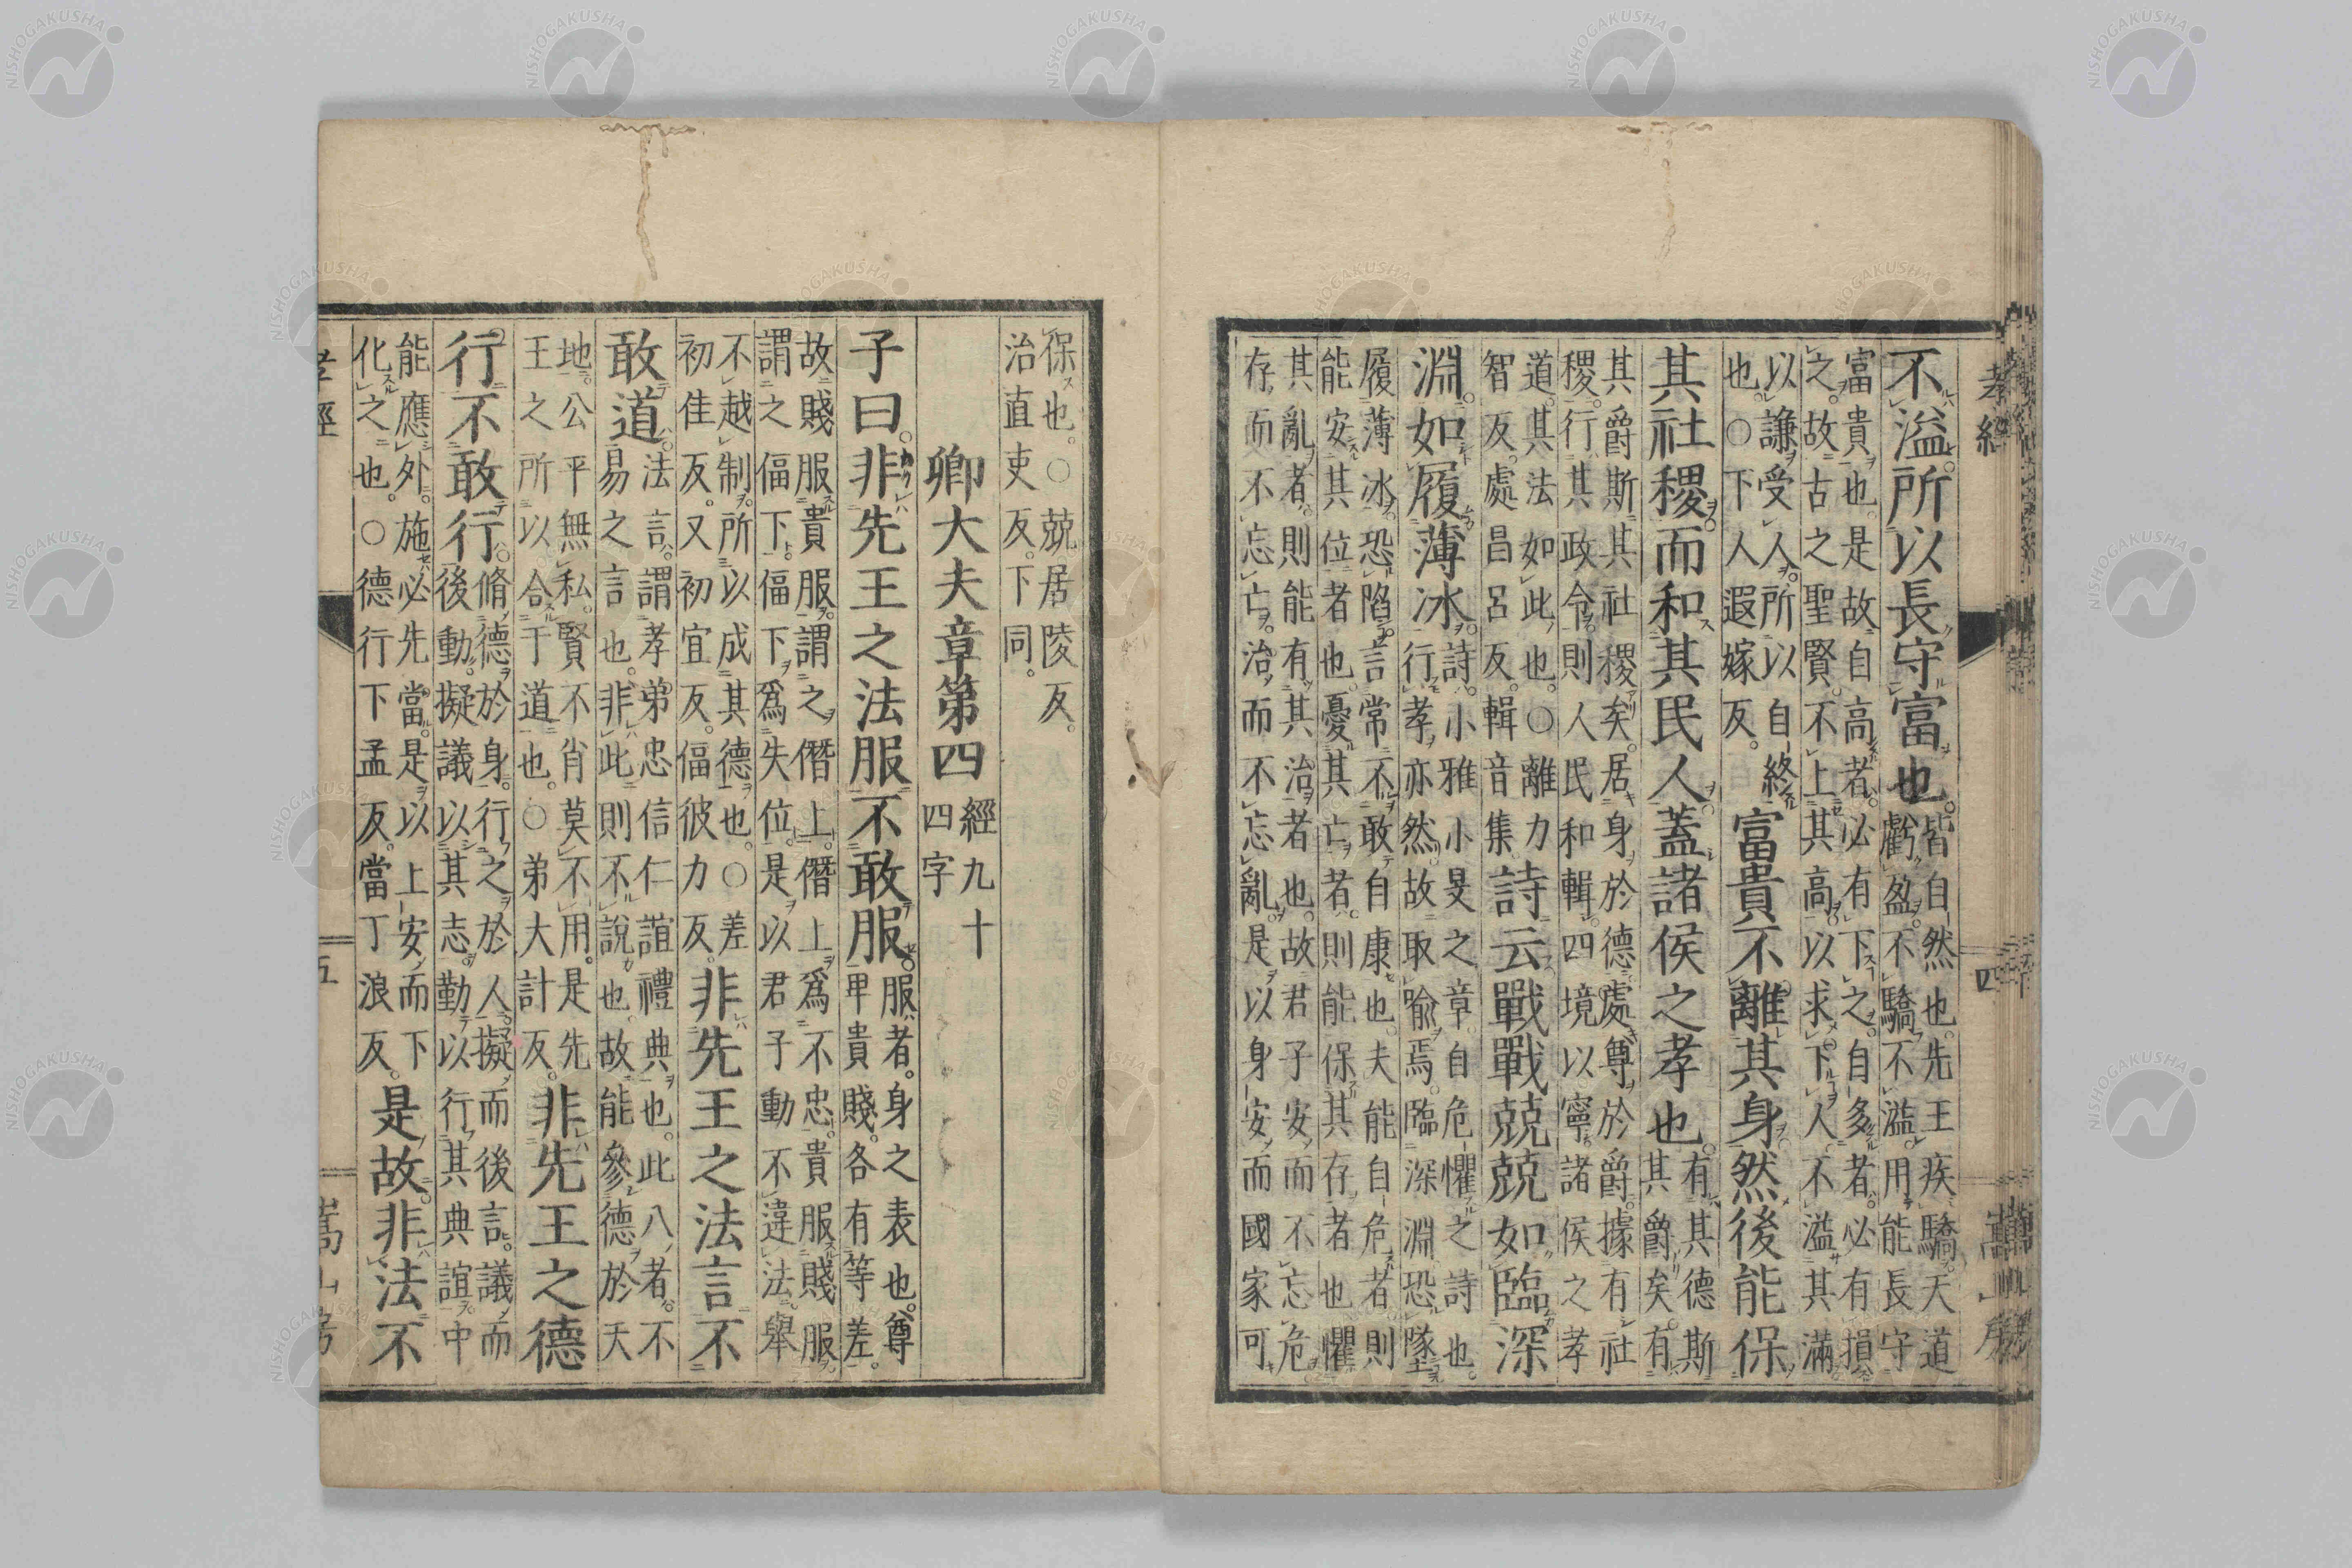 孝經
四
不溢所以長守富也皆自然也先王疾驕天道
虧盈不驕不溢用能長守
富貴也是故自高者必有下之自多者必有損
之故古之聖賢不上其高以求下人不溢其滿
以謙受人所以自終
也○下人遐嫁反富貴不離其身然後能保
其社稷而和其民人蓋諸侯之孝也有其德斯
其爵矣有
其爵斯其社稷矣居身於德處尊於爵據有社
稷行其政令則人民和輯四境以寧諸侯之孝
道其法如此也○離力
智反處昌呂反輯音集詩云戰戰兢兢如臨深
淵如履薄冰詩小雅小旻之章自危懼之詩也
行孝亦然故取喻焉臨深淵恐墜
履薄冰恐陷言常不敢自康也夫能自危者則
能安其位者也憂其亡者則能保其存者也懼
其亂者則能有其治者也故君子安而不忘危
存而不忘亡治而不忘亂是以身安而國家可
保也○兢居陵反
治直吏反下同
卿大夫章第四經九十
四字
子曰非先王之法服不敢服服者身之表也尊
卑貴賤各有等差
故賤服貴服謂之僭上僭上爲不忠貴服賤服
謂之偪下偪下爲失位是以君子動不違法舉
不越制所以成其德也○差
初佳反又初宜反偪彼力反非先王之法言不
敢道法言謂孝弟忠信仁誼禮典也此八者不
易之言也非此則不說也故能參德於天
地公平無私賢不肖莫不用是先
王之所以合于道也○弟大計反非先王之德
行不敢行脩德於身行之於人擬而後言議而
後動擬議以其志勤以行其典誼中
能應外施必先當是以上安而下
化之也○德行下孟反當丁浪反是故非法不
孝經
五
嵩山房